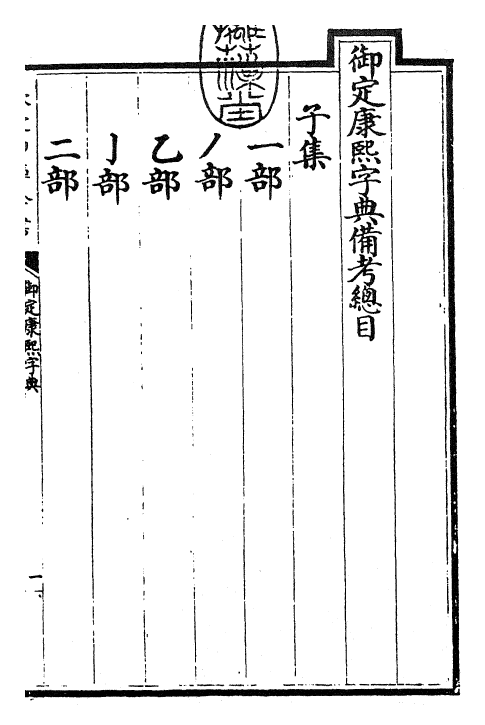 御定康熙字典備考總目
子集
一部
丿部
乙部
亅部
二部
御定康熙字典
一